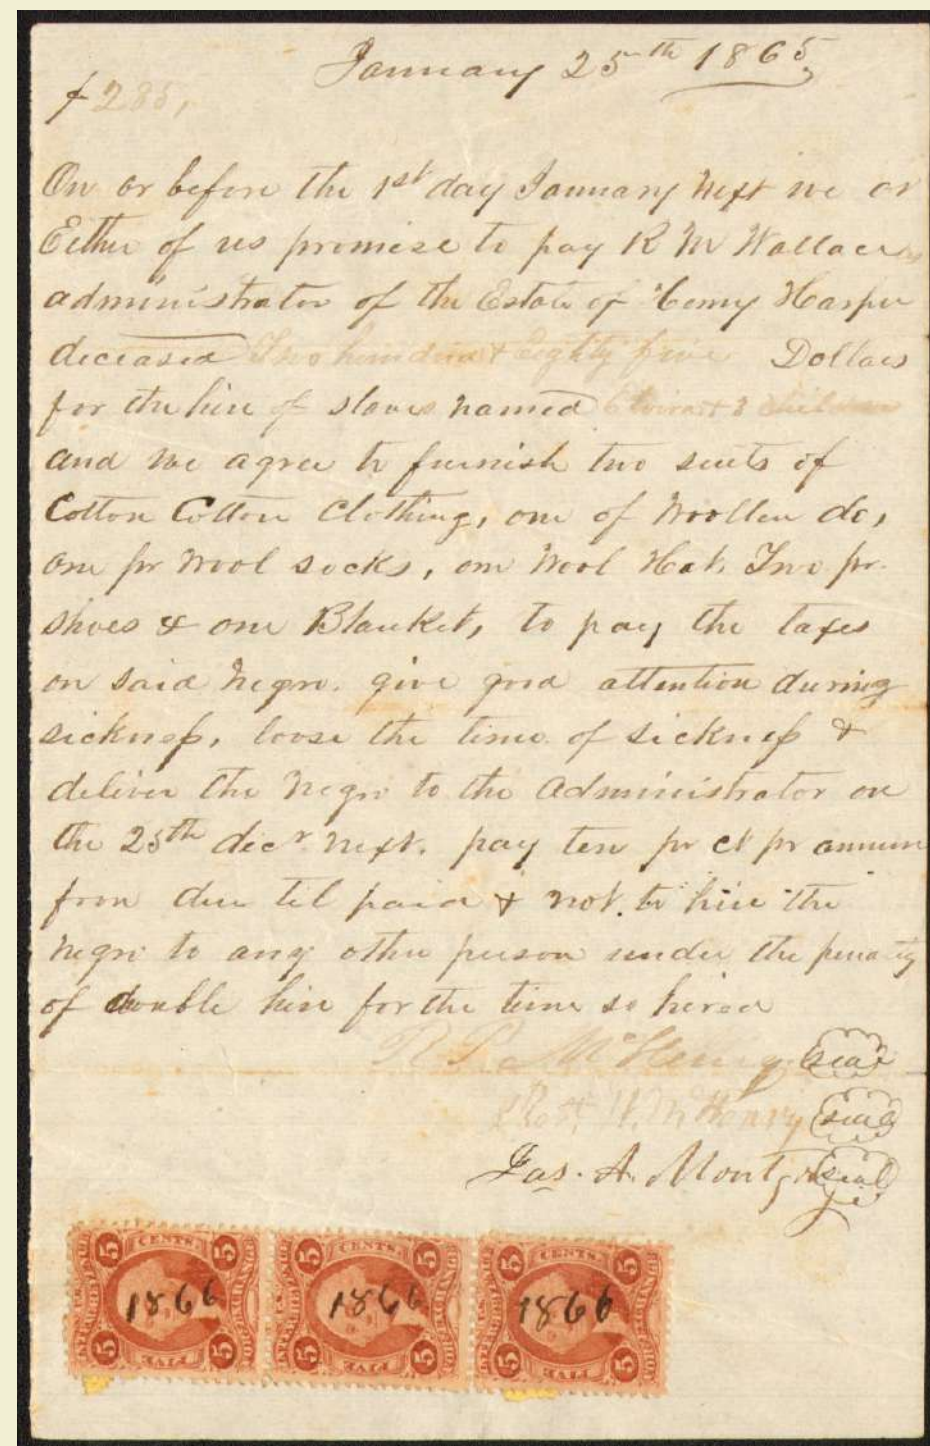 January 25th 1865,
$285,
On or before the 1st day January next we or
Either of us promise to pay R M Wallace as
administrator of the Estate of Henry Harper
deceased Two hundred & Eighty five Dollars
for the hire of slaves named & 3 children
and we agree to furnish two suits of
Cotton Cotton Clothing, one of Woollen do,
one pr Wool socks, one Wool Hat, Two pr.
shoes & one Blanket, to pay the taxes
on said Negro. give good attention during
sickness, loose the time of sickness &
deliver the Negro to the Administrator on
the 25th decr next. pay ten pr ct pr annum
from due til paid & not to hire the
negro to any other person under the penalty
of double hire for the time so hired
McHenry seal
W. McHenry seal
Jas. A. Montg seal
5 CENTS. 5 5 CENTS. 5 5 CENTS. 5
U.S. INTER. REVENUE EXCHANGE U.S. INTER. REVENUE EXCHANGE U.S. INTER. REVENUE EXCHANGE
1866 1866 1866
5 FIVE 5 5 FIVE 5 5 FIVE 5